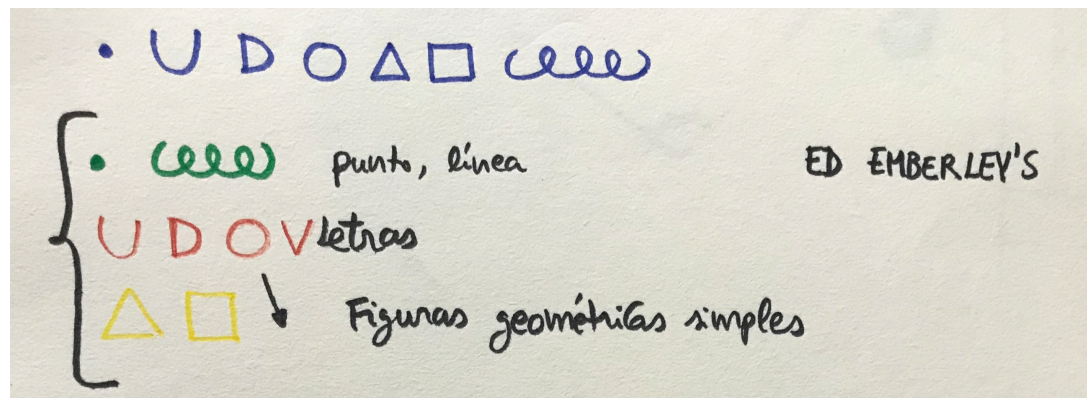 U D O
punto, línea
ED EMBERLEY'S
U D O V letras
Figuras geométricas simples